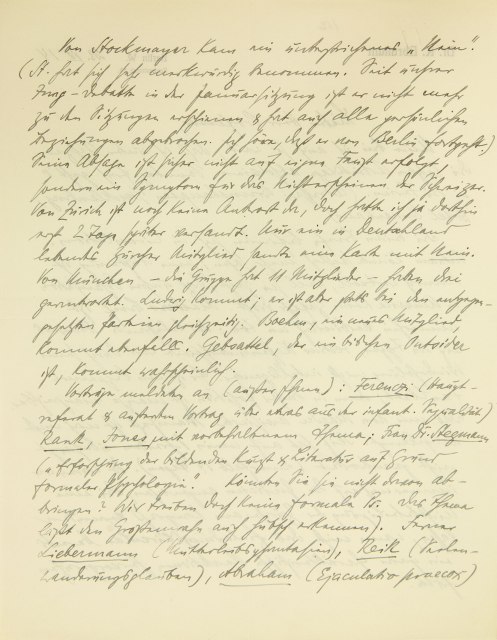 Von Stockmayer kam ein unterstrichenes „Nein".
(St. hat sich sehr merkwürdig benommen. Seit unsrer
Jung-Debatte in der Januarsitzung ist er nicht mehr
zu den Sitzungen erschienen & hat auch alle persönlichen
Beziehungen abgebrochen. Ich höre, daß er von Berlin fortgeht.)
Seine Absage ist sicher nicht auf eigne Faust erfolgt,
sondern ein Symptom für das Nichterscheinen der Schweizer.
Von Zürich ist noch keine Antwort da, doch hatte ich ja dorthin
erst 2 Tage später versandt. Nur ein in Deutschland
lebendes Zürcher Mitglied sandte eine Karte mit Nein.
Von München – die Gruppe hat 11 Mitglieder – haben drei
geantwortet. kommt; er ist aber stets bei den entgegen-
gesetzten Parteien gleichzeitig. Boehm, ein neues Mitglied,
kommt ebenfalls. Gebsattel, der ein bißchen Outsider
ist, kommt wahrscheinlich.
Vorträge meldeten an (außer Ihnen): Ferenczi (Haupt-
referat & außerdem Vortrag über etwas aus der infant. Sexualität)
Rank, Jones mit vorbehaltenem Thema; Frau Dr. Stegmann
„Erforschung der bildenden Kunst & Literatur auf Grund
formaler Psychologie". Könnten Sie sie nicht davon ab-
bringen? Wir treiben doch keine formale Ps. Das Thema
läßt den Größenwahn auch hübsch erkennen). Ferner
Liebermann (Mutterleibsphantasien), Reik (Seelen-
wanderungsglauben), Abraham (Ejaculatio praecox)